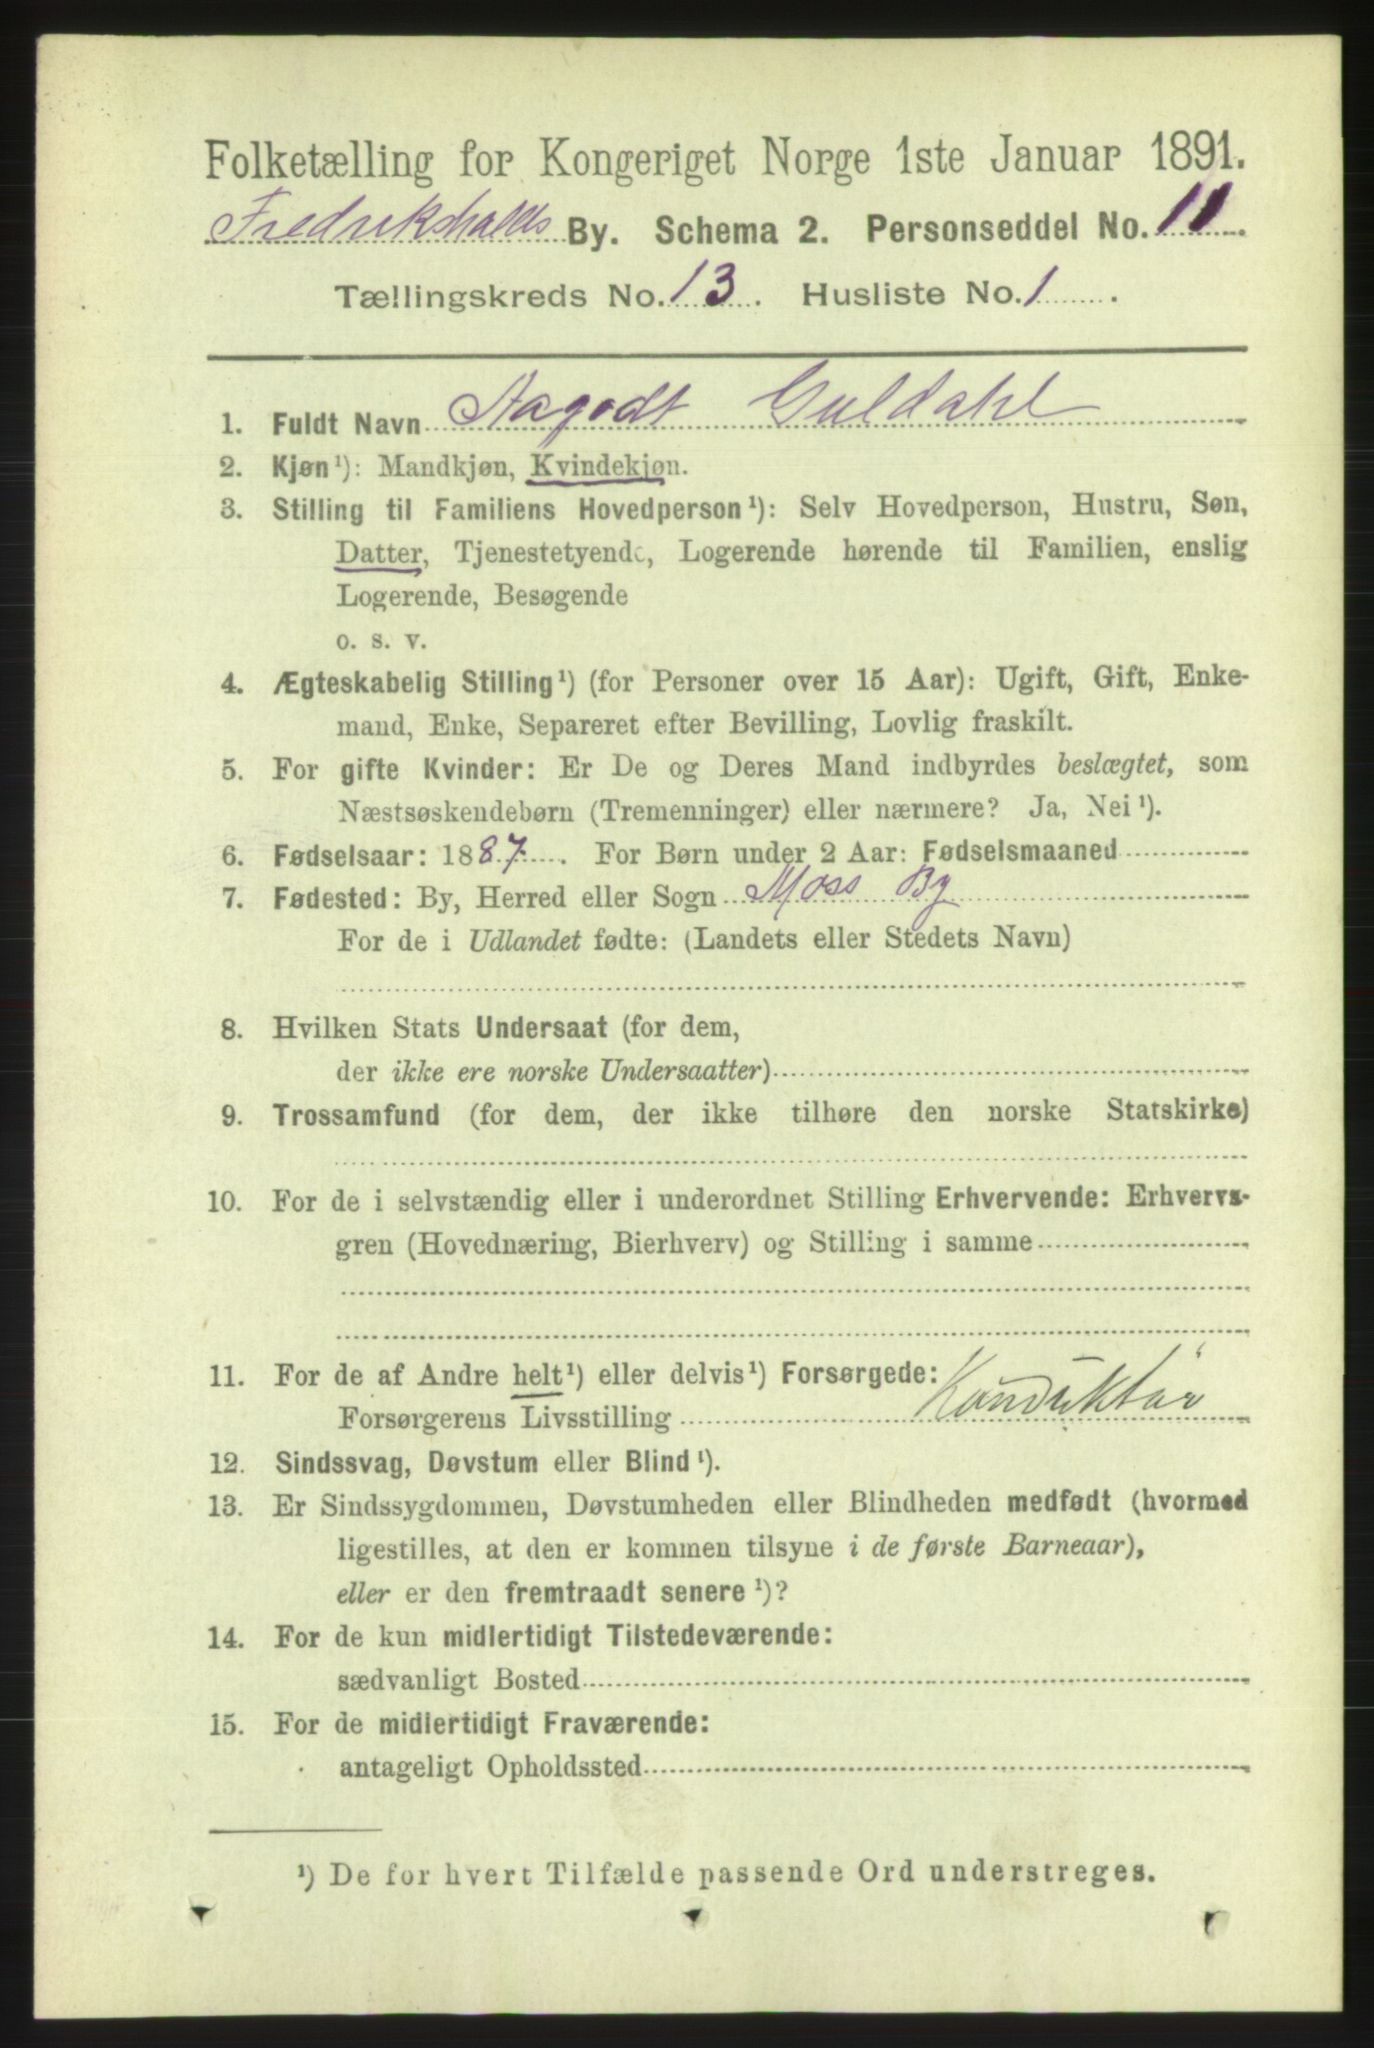 Folketælling for Kongeriget Norge 1ste Januar 1891.
Fredrikshalds By. Schema 2. Personseddel No. 11.
Tællingskreds No. 13. Husliste No. 1.
1. Fuldt Navn Aagodt Guldahl
2. Kjøn¹): Mandkjøn, Kvindekjøn.
3. Stilling til Familiens Hovedperson¹): Selv Hovedperson, Hustru, Søn,
Datter, Tjenestetyende, Logerende hørende til Familien, enslig
Logerende, Besøgende
o. s. v.
4. Ægteskabelig Stilling¹) (for Personer over 15 Aar): Ugift, Gift, Enke-
mand, Enke, Separeret efter Bevilling, Lovlig fraskilt.
5. For gifte Kvinder: Er De og Deres Mand indbyrdes beslægtet, som
Næstsøskendebørn (Tremenninger) eller nærmere? Ja, Nei¹).
6. Fødselsaar: 1887. For Børn under 2 Aar: Fødselsmaaned
7. Fødested: By, Herred eller Sogn Moss By
For de i Udlandet fødte: (Landets eller Stedets Navn)
8. Hvilken Stats Undersaat (for dem,
der ikke ere norske Undersaatter)
9. Trossamfund (for dem, der ikke tilhøre den norske Statskirke)
10. For de i selvstændig eller i underordnet Stilling Erhvervende: Erhvervs-
gren (Hovednæring, Bierhverv) og Stilling i samme
11. For de af Andre helt¹) eller delvis¹) Forsørgede:
Forsørgerens Livsstilling Konduktör
12. Sindssvag, Døvstum eller Blind¹).
13. Er Sindssygdommen, Døvstumheden eller Blindheden medfødt (hvormed
ligestilles, at den er kommen tilsyne i de første Barneaar),
eller er den fremtraadt senere¹)?
14. For de kun midlertidigt Tilstedeværende:
sædvanligt Bosted
15. For de midlertidigt Fraværende:
antageligt Opholdssted
¹) De for hvert Tilfælde passende Ord understreges.